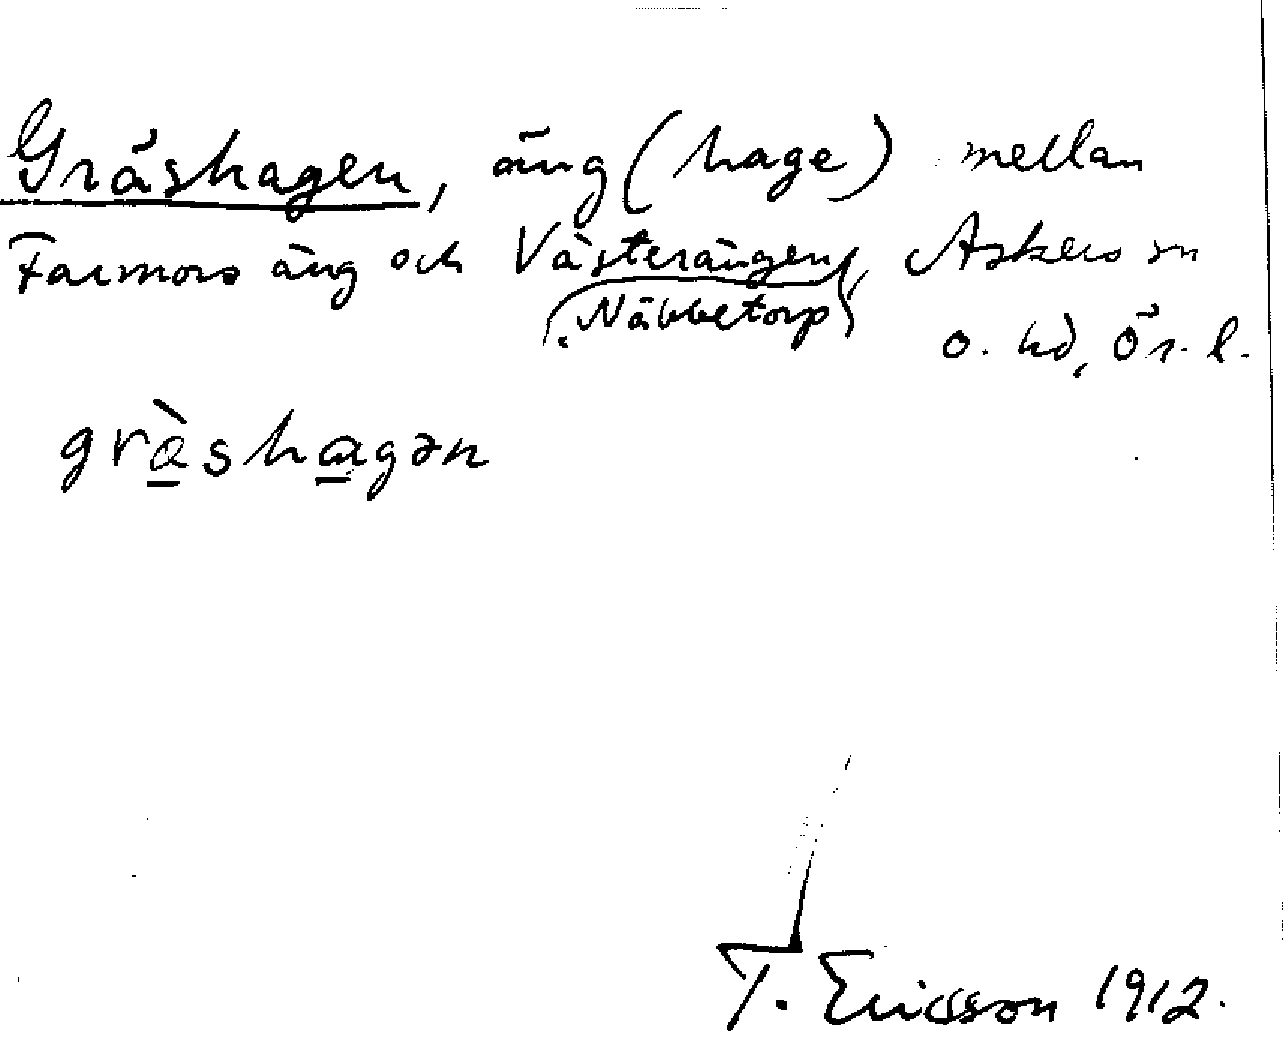 Gräshagen, äng (hage) mellan
Farmors äng och Västerängen, Askers sn
(Näbbetorp)
o. hd, Ör. l.
gràshagən
T. Ericsson 1912.